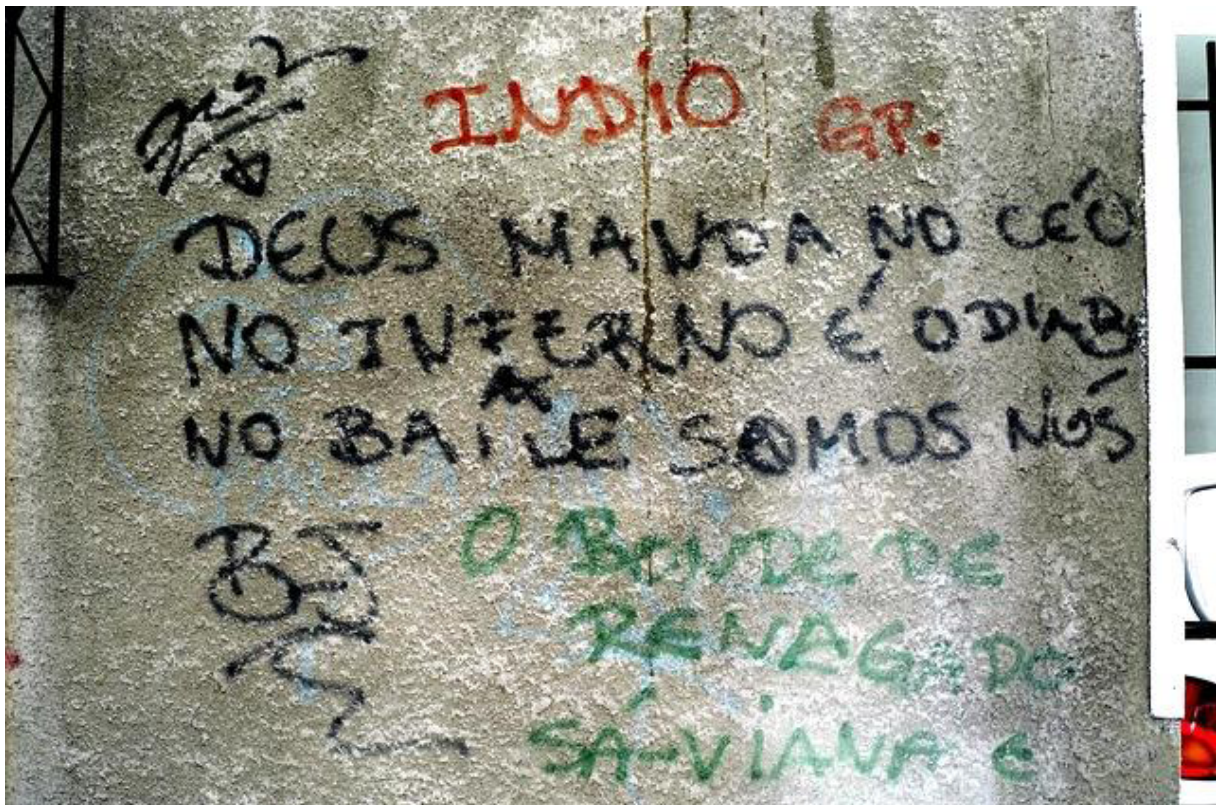 INDIO GP.
DEUS MANDA NO CÉO
NO INFERNO É O DIABO
NO BAILE SOMOS NÓS
BJ
O BONDE DE
RENAGADO
SÁ-VIANA E